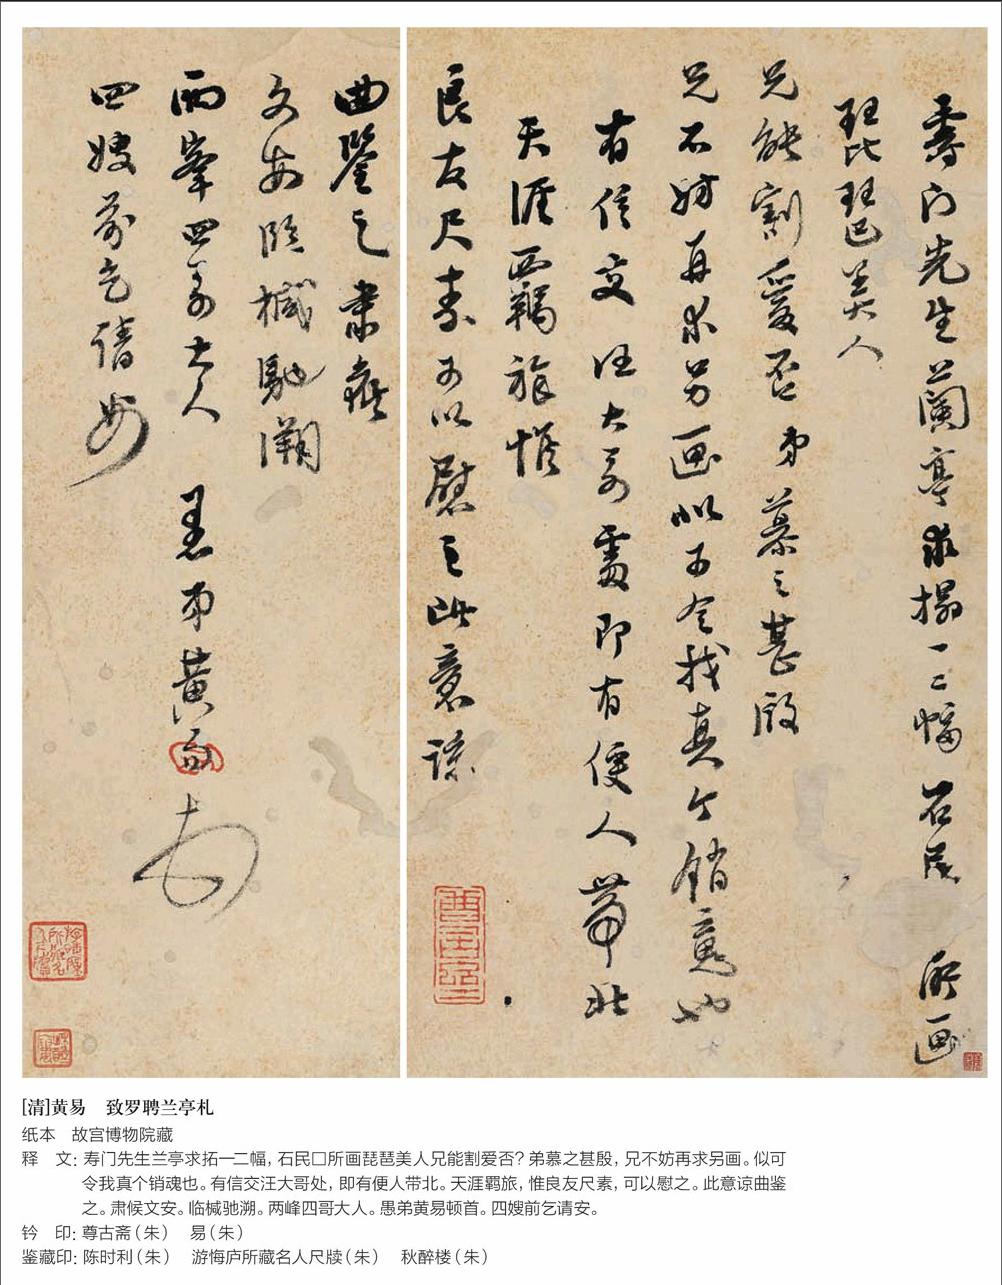 壽门先生蘭亭求搨一二幅石民 所画
琵琶美人
兄能割愛否弟慕之甚殷
兄不妨再求另画似可令我真个銷魂也
有信交汪大哥處即有便人带北
天涯羈旅惟
良友尺素可以慰之此意諒
曲鑒之肃候
文安臨楲馳溯
兩峯四哥大人 愚弟黄易頓首
四嫂前乞請安
[清]黄易 致罗聘兰亭札
纸本 故宫博物院藏
释 文：寿门先生兰亭求拓一二幅，石民□所画琵琶美人兄能割爱否？弟慕之甚殷，兄不妨再求另画。似可
令我真个销魂也。有信交汪大哥处，即有便人带北。天涯羁旅，惟良友尺素，可以慰之。此意谅曲鉴
之。肃候文安。临楲驰溯。两峰四哥大人。愚弟黄易顿首。四嫂前乞请安。
钤 印：尊古斋（朱） 易（朱）
鉴藏印：陈时利（朱） 游悔庐所藏名人尺牍（朱） 秋醉楼（朱）